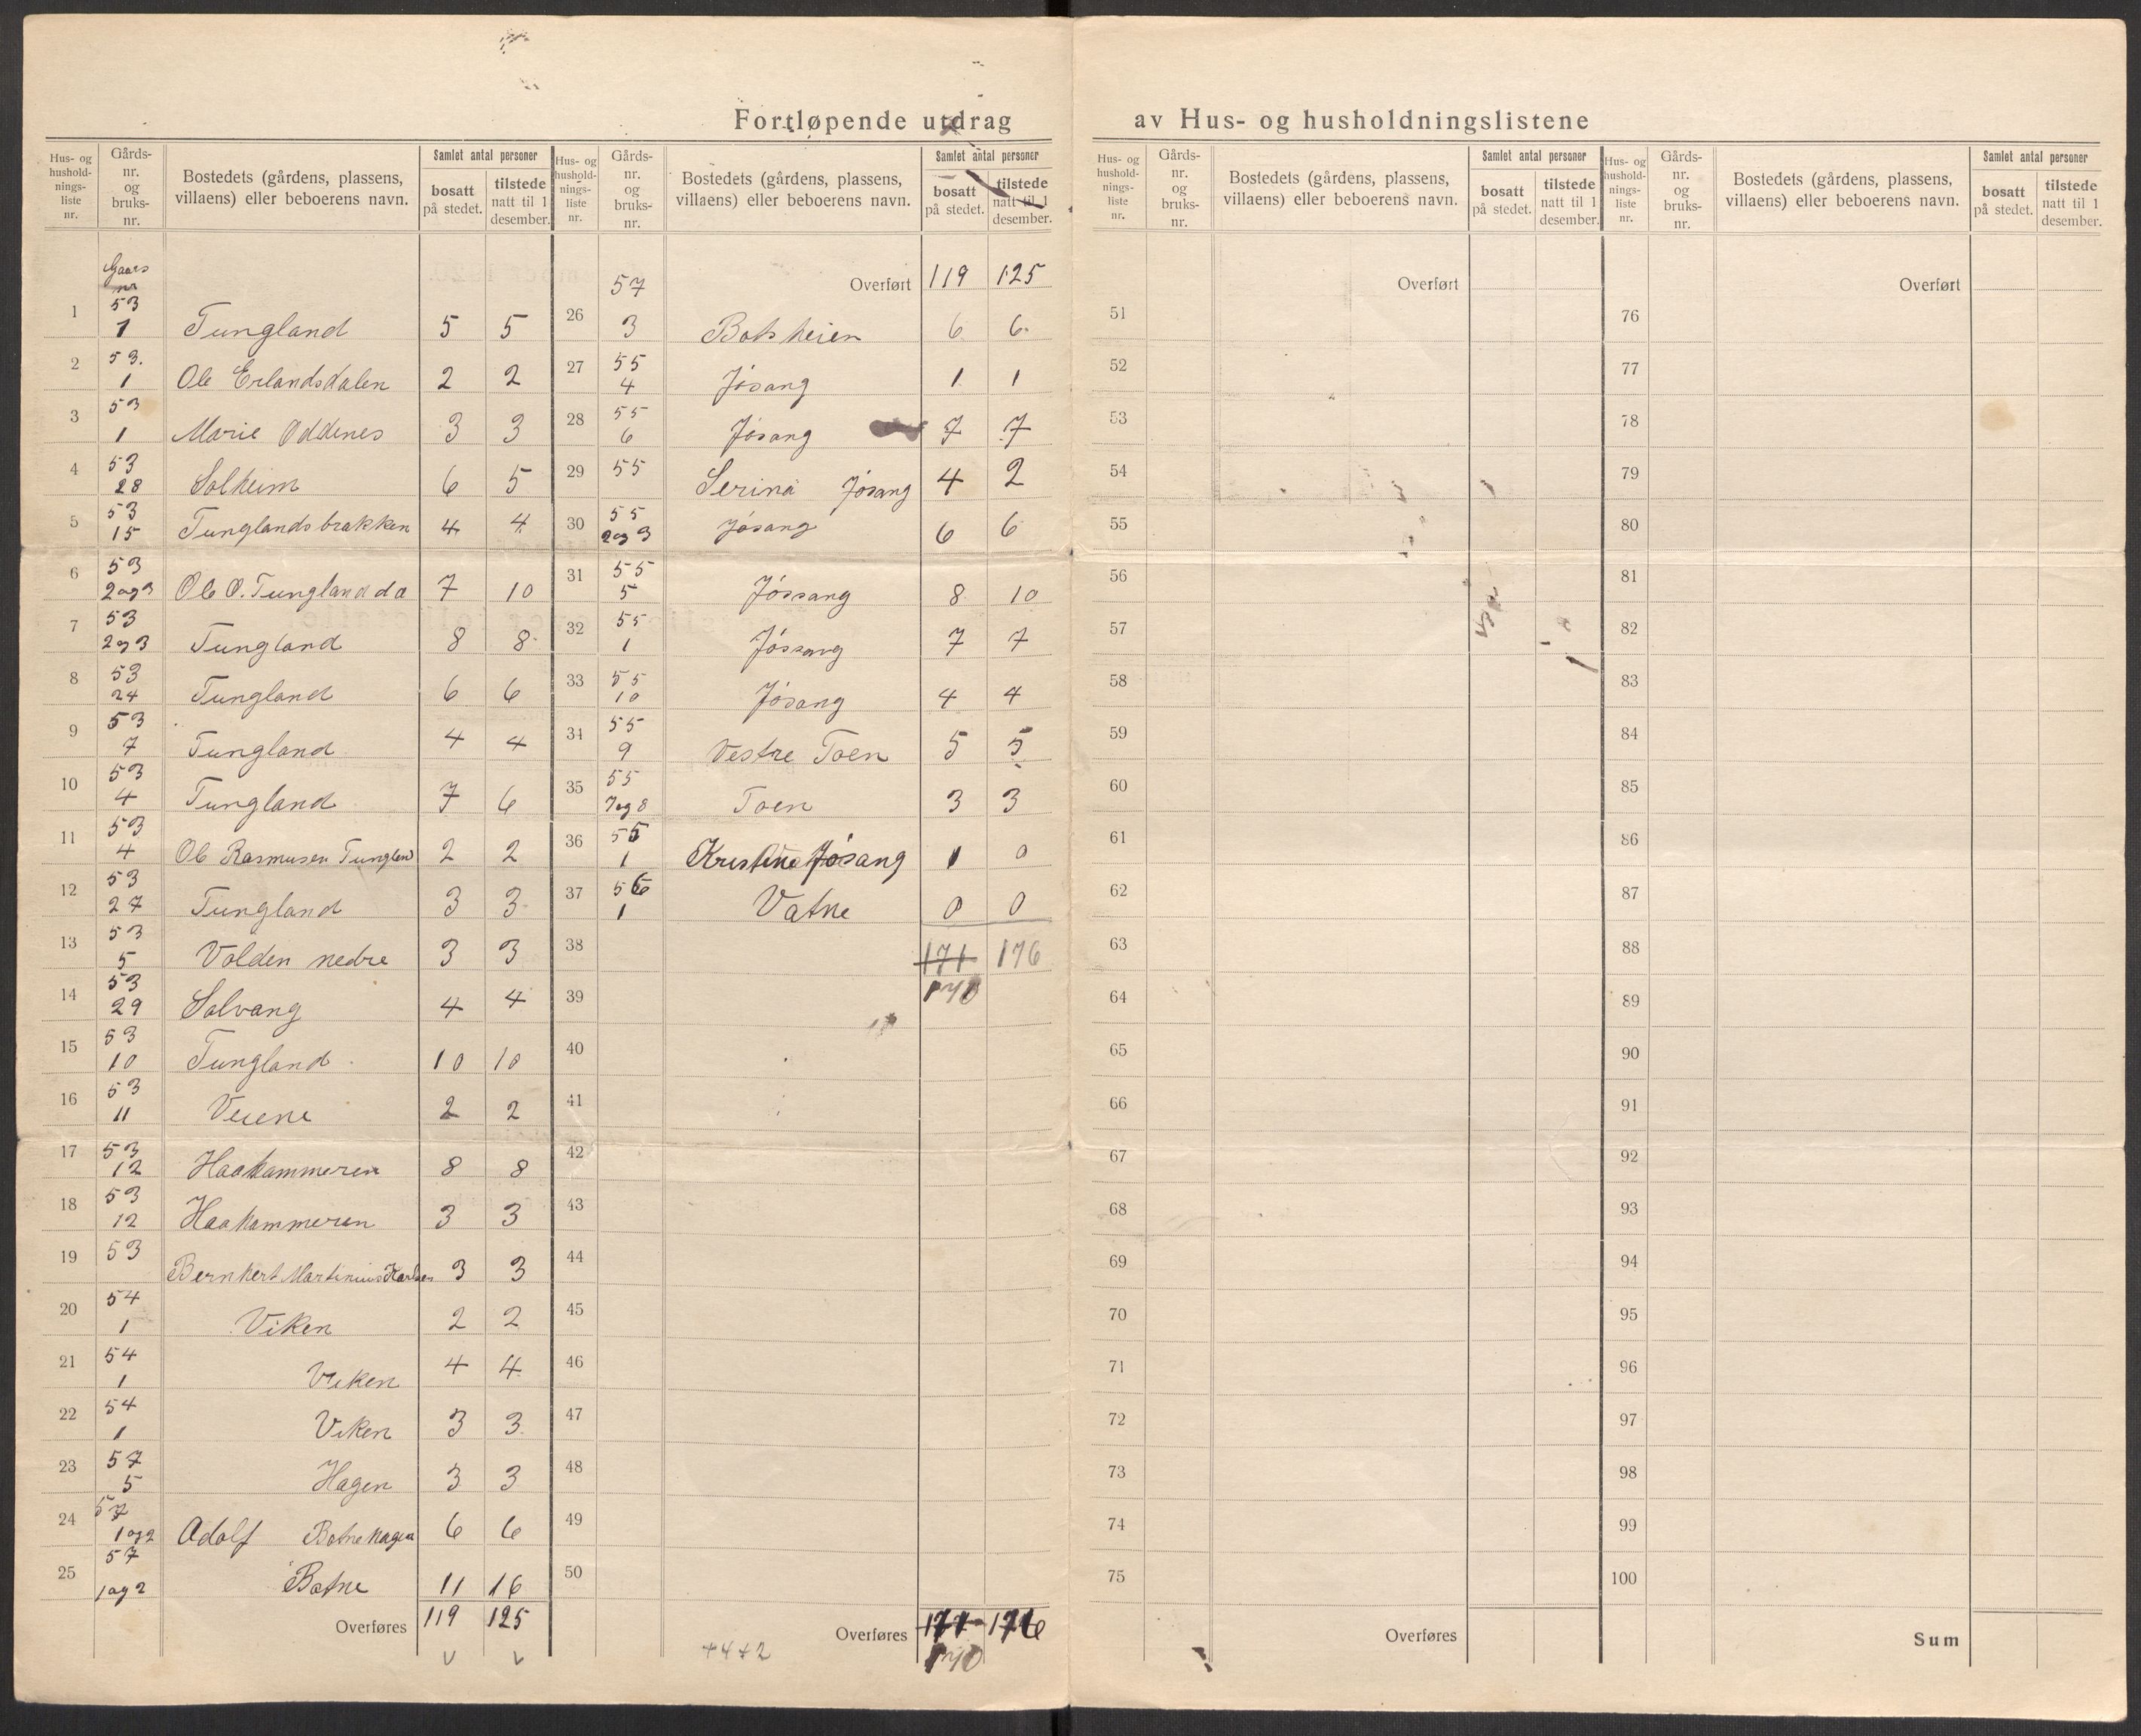 Fortløpende utdrag av Hus- og husholdningslistene
Hus- og hushold-nings-liste nr. Gårds-nr. og bruks-nr. Bostedets (gårdens, plassens, villaens) eller beboerens navn. Samlet antal personer bosatt på stedet. tilstede natt til 1 desember.
Hus- og hushold-nings-liste nr. Gårds-nr. og bruks-nr. Bostedets (gårdens, plassens, villaens) eller beboerens navn. Samlet antal personer bosatt på stedet. tilstede natt til 1 desember.
Hus- og hushold-nings-liste nr. Gårds-nr. og bruks-nr. Bostedets (gårdens, plassens, villaens) eller beboerens navn. Samlet antal personer bosatt på stedet. tilstede natt til 1 desember.
Hus- og hushold-nings-liste nr. Gårds-nr. og bruks-nr. Bostedets (gårdens, plassens, villaens) eller beboerens navn. Samlet antal personer bosatt på stedet. tilstede natt til 1 desember.
Gaars nr
1 53 1 Tungland 5 5
2 53. 1 Ole Erlandsdalen 2 2
3 53 1 Marie Oddenes 3 3
4 53 28 Solheim 6 5
5 53 15 Tunglandsbrakken 4 4
6 53 2og3 Ole O. Tungland da 7 10
7 53 2og3 Tungland 8 8
8 53 24 Tungland 6 6
9 53 7 Tungland 4 4
10 53 4 Tungland 7 6
11 53 4 Ole Rasmusen Tungland 2 2
12 53 27 Tungland 3 3
13 53 5 Volden nedre 3 3
14 53 29 Solvang 4 4
15 53 10 Tungland 10 10
16 53 11 Veiene 2 2
17 53 12 Haakammeren 8 8
18 53 12 Haakammeren 3 3
19 53 Bernhert Martinius Karlsen 3 3
20 54 1 Viken 2 2
21 54 1 Viken 4 4
22 54 1 Viken 3 3
23 57 5 Hagen 3 3
24 57 1og2 Adolf Botnehagen 6 6
25 57 1og2 Botne 11 16
Overføres 119 125
Overført 119 125
26 57 3 Botsheien 6 6
27 55 4 Jósang 1 1
28 55 6 Jósang 7 7
29 55 Serina Jósang 4 2
30 55 2og3 Jósang 6 6
31 55 5 Jóssang 8 10
32 55 1 Jóssang 7 7
33 55 10 Jósang 4 4
34 55 9 Vestre Toen 5 5
35 55 7og8 Toen 3 3
36 55 1 Kristine Jósang 1 0
37 56 1 Vatne 0 0
38 171 176
39 170
40
41
42
43
44
45
46
47
48
49
50
Overføres 171 176
+4+2 170
Overført
51
52
53
54
55
56
57
58
59
60
61
62
63
64
65
66
67
68
69
70
71
72
73
74
75
Overføres
Overført
76
77
78
79
80
81
82
83
84
85
86
87
88
89
90
91
92
93
94
95
96
97
98
99
100
Sum